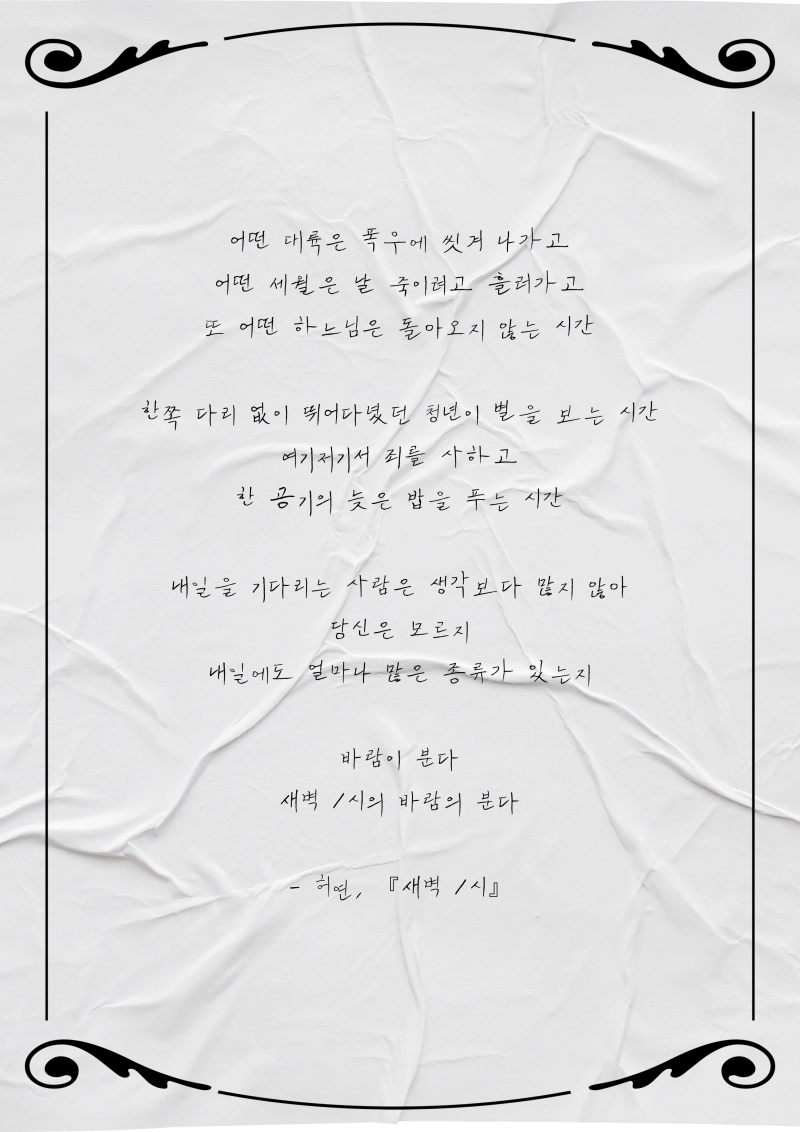 어떤 대륙은 폭우에 씻겨 나가고
어떤 세월은 날 죽이려고 흘러가고
또 어떤 하느님은 돌아오지 않는 시간
한쪽 다리 없이 뛰어다녔던 청년이 별을 보는 시간
여기저기서 죄를 사하고
한 공기의 늦은 밥을 푸는 시간
내일을 기다리는 사람은 생각보다 많지 않아
당신은 모르지
내일에도 얼마나 많은 종류가 있는지
바람이 분다
새벽 1시의 바람의 분다
- 허연, 『새벽 1시』